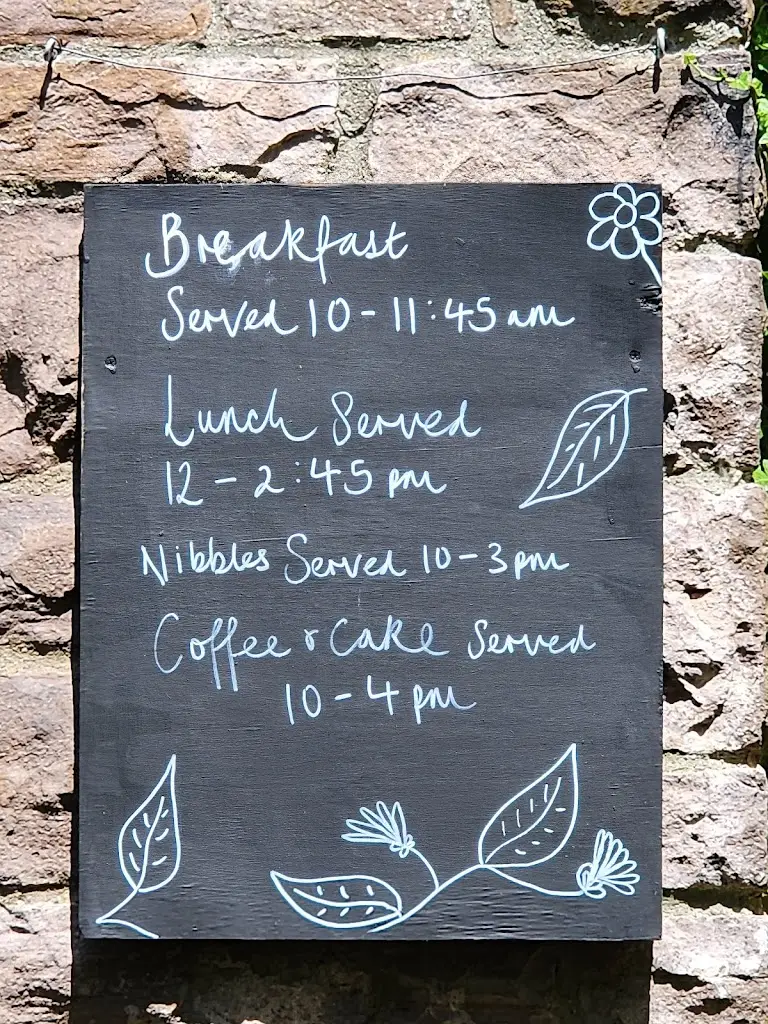 Breakfast
Served 10 - 11:45 am
Lunch Served
12 - 2:45 pm
Nibbles Served 10 - 3pm
Coffee & Cake Served
10 - 4 pm